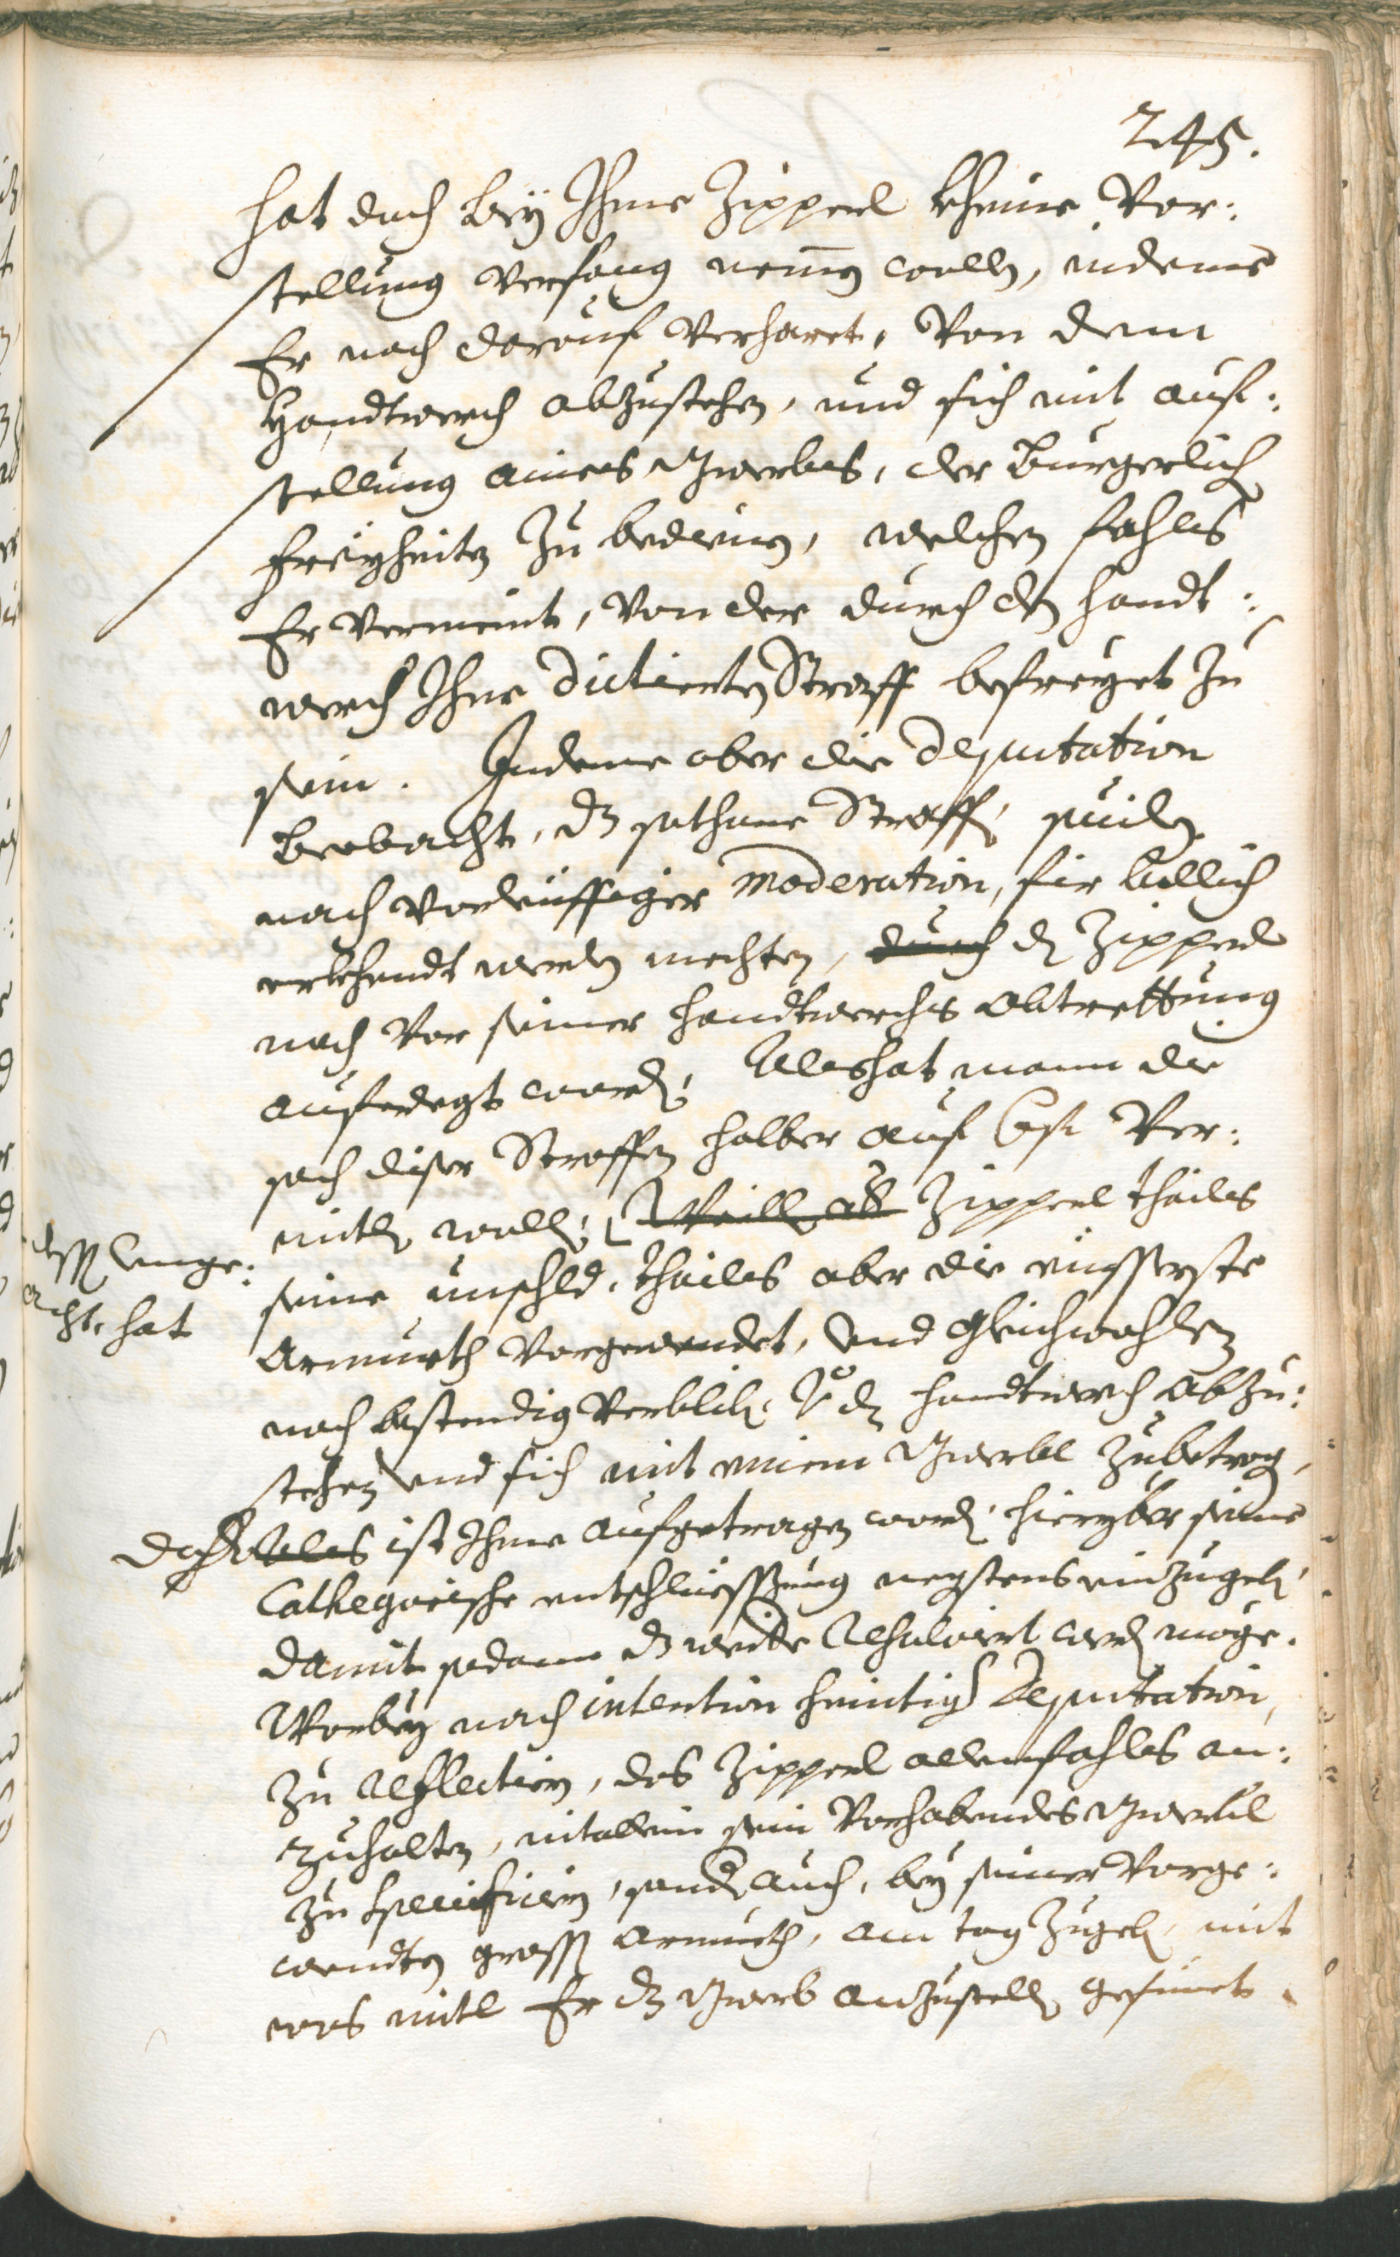 245.
hat doch bey Ihme Zipperl kheine Vor:
stellung verfang nemen wollen, indeme
Er noch darauf verharet, Von dem
Handtwerch abzustehen, und sich mit auf:
stellung aines Gwerbes, der Burgerlich
freyheiten zu bedienen, welchen fahls
Er vermeint, von der durch dz Handt:
werch Ihme dictierten Straff befreyet zu
sein. Indeme aber die Deputation
beobacht, dz sothane Straff,
nach vorleuffiger moderation, fir billich
erkhendt werden mechten, durch dem Zipperl
noch vor seiner Handtwerchs abtrettung
auferlegt worden; Alss hat mann die
sach diser Straffen halber auf Ver:
mitln wollen; Weillen aber Zipperl theils
dessen unge:
acht, hat
seine unschuld, theils aber die eusserste
Armueth vorgewendet, und gleichwohlen
noch bestendig verbliben, von dem Handtwerch abzu:
stehen und sich mit einem Gwerbl zubetragen,
Dahero Alss ist Ihme aufgetragen worden, hieryber seine
Cathegorische entschliessung negstens einzugeben,
damit sodann dz weitere resolviert werden möge.
Worbey nach intention heuntiger Deputation,
zu reflectiern, das Zipperl allenfahls an:
zuhalten, nit allein sein vorhabendes Gwerbl
zu specificiern, sondern auch, bey seiner vorge:
wendten grossen Armueth, an tag zugeben, mit
was mitl Er dz Gwerb anzustellen gesinnet.